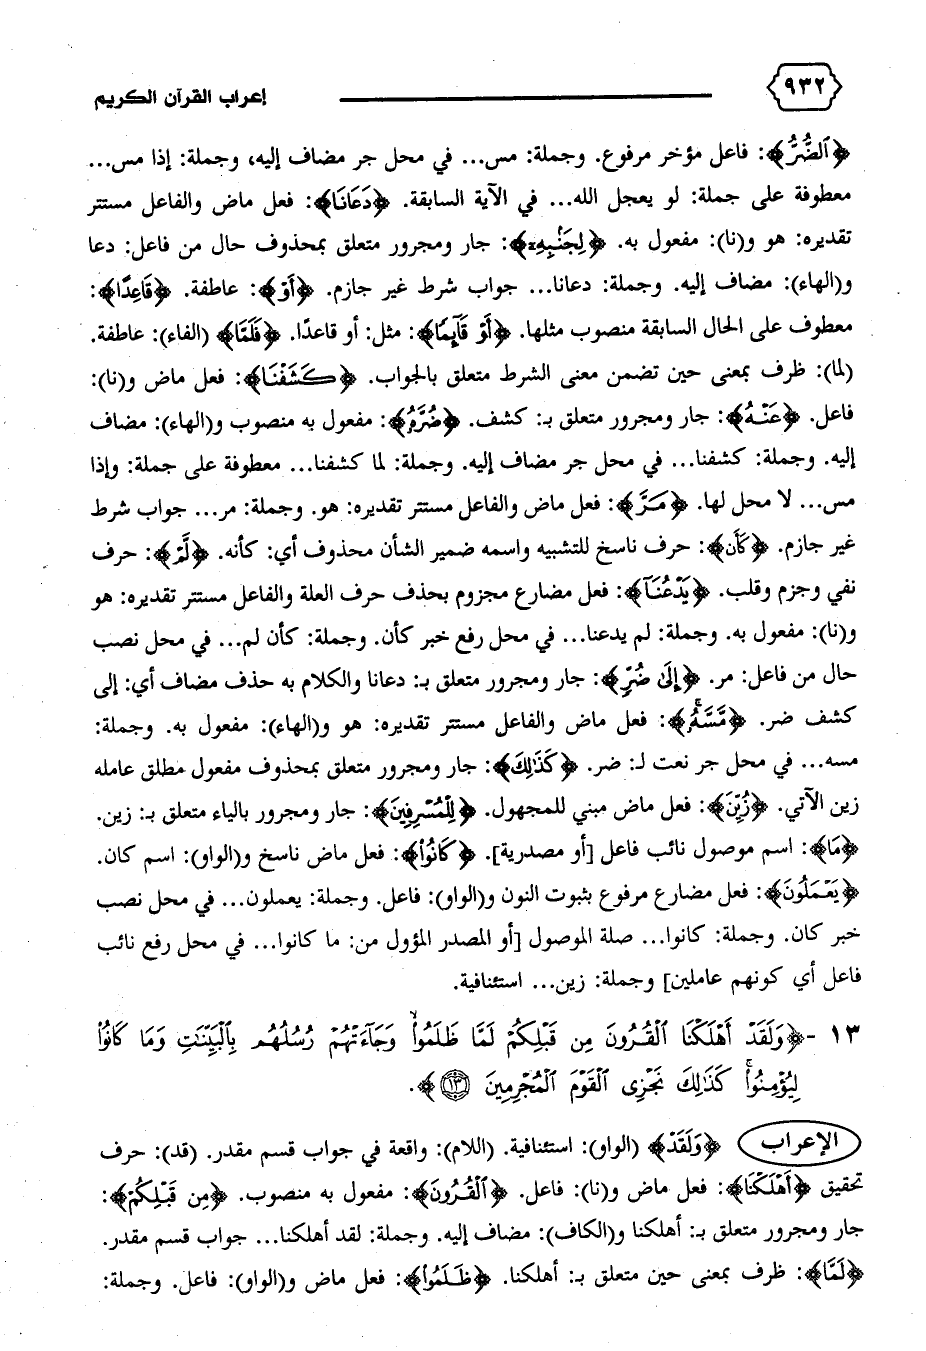 ٩٣٢
إعراب القرآن الكريم
﴿ٱلضُّرُّ﴾: فاعل مؤخر مرفوع. وجملة: مس... في محل جر مضاف إليه، وجملة: إذا مس...
معطوفة على جملة: لو يعجل الله... في الآية السابقة. ﴿دَعَانَا﴾: فعل ماض والفاعل مستتر
تقديره: هو و(نا): مفعول به. ﴿لِجَنۢبِهِۦٓ﴾: جار ومجرور متعلق بمحذوف حال من فاعل: دعا
و(الهاء): مضاف إليه. وجملة: دعانا... جواب شرط غير جازم. ﴿أَوۡ﴾: عاطفة. ﴿قَاعِدًا﴾:
معطوف على الحال السابقة منصوب مثلها. ﴿أَوۡ قَآئِمًا﴾: مثل: أو قاعدًا. ﴿فَلَمَّا﴾ (الفاء): عاطفة.
(لما): ظرف بمعنى حين تضمن معنى الشرط متعلق بالجواب. ﴿كَشَفۡنَا﴾: فعل ماض و(نا):
فاعل. ﴿عَنۡهُ﴾: جار ومجرور متعلق بـ: كشف. ﴿ضُرَّهُۥ﴾: مفعول به منصوب و(الهاء): مضاف
إليه. وجملة: كشفنا... في محل جر مضاف إليه. وجملة: لما كشفنا... معطوفة على جملة: وإذا
مس... لا محل لها. ﴿مَرَّ﴾: فعل ماض والفاعل مستتر تقديره: هو. وجملة: مر... جواب شرط
غير جازم. ﴿كَأَن﴾: حرف ناسخ للتشبيه واسمه ضمير الشأن محذوف أي: كأنه. ﴿لَّمۡ﴾: حرف
نفي وجزم وقلب. ﴿يَدۡعُنَآ﴾: فعل مضارع مجزوم بحذف حرف العلة والفاعل مستتر تقديره: هو
و(نا): مفعول به. وجملة: لم يدعنا... في محل رفع خبر كأن. وجملة: كأن لم... في محل نصب
حال من فاعل: مر. ﴿إِلَىٰ ضُرٍّ﴾: جار ومجرور متعلق بـ: دعانا والكلام به حذف مضاف أي: إلى
كشف ضر. ﴿مَّسَّهُۥۚ﴾: فعل ماض والفاعل مستتر تقديره: هو و(الهاء): مفعول به. وجملة:
مسه... في محل جر نعت لـ: ضر. ﴿كَذَٰلِكَ﴾: جار ومجرور متعلق بمحذوف مفعول مطلق عامله
زين الآتي. ﴿زُيِّنَ﴾: فعل ماض مبني للمجهول. ﴿لِلۡمُسۡرِفِينَ﴾: جار ومجرور بالياء متعلق بـ: زين.
﴿مَا﴾: اسم موصول نائب فاعل [أو مصدرية]. ﴿كَانُواْ﴾: فعل ماض ناسخ و(الواو): اسم كان.
﴿يَعۡمَلُونَ﴾: فعل مضارع مرفوع بثبوت النون و(الواو): فاعل. وجملة: يعملون... في محل نصب
خبر كان. وجملة: كانوا... صلة الموصول [أو المصدر المؤول من: ما كانوا... في محل رفع نائب
فاعل أي كونهم عاملين] وجملة: زين... استئنافية.
١٣ - ﴿وَلَقَدۡ أَهۡلَكۡنَا ٱلۡقُرُونَ مِن قَبۡلِكُمۡ لَمَّا ظَلَمُواْۙ وَجَآءَتۡهُمۡ رُسُلُهُم بِٱلۡبَيِّنَٰتِ وَمَا كَانُواْ
لِيُؤۡمِنُواْۚ كَذَٰلِكَ نَجۡزِي ٱلۡقَوۡمَ ٱلۡمُجۡرِمِينَ ۝١٣﴾.
الإعراب ﴿وَلَقَدۡ﴾ (الواو): استئنافية. (اللام): واقعة في جواب قسم مقدر. (قد): حرف
تحقيق ﴿أَهۡلَكۡنَا﴾: فعل ماض و(نا): فاعل. ﴿ٱلۡقُرُونَ﴾: مفعول به منصوب. ﴿مِن قَبۡلِكُمۡ﴾:
جار ومجرور متعلق بـ: أهلكنا و(الكاف): مضاف إليه. وجملة: لقد أهلكنا... جواب قسم مقدر.
﴿لَمَّا﴾: ظرف بمعنى حين متعلق بـ: أهلكنا. ﴿ظَلَمُواْ﴾: فعل ماض و(الواو): فاعل. وجملة: